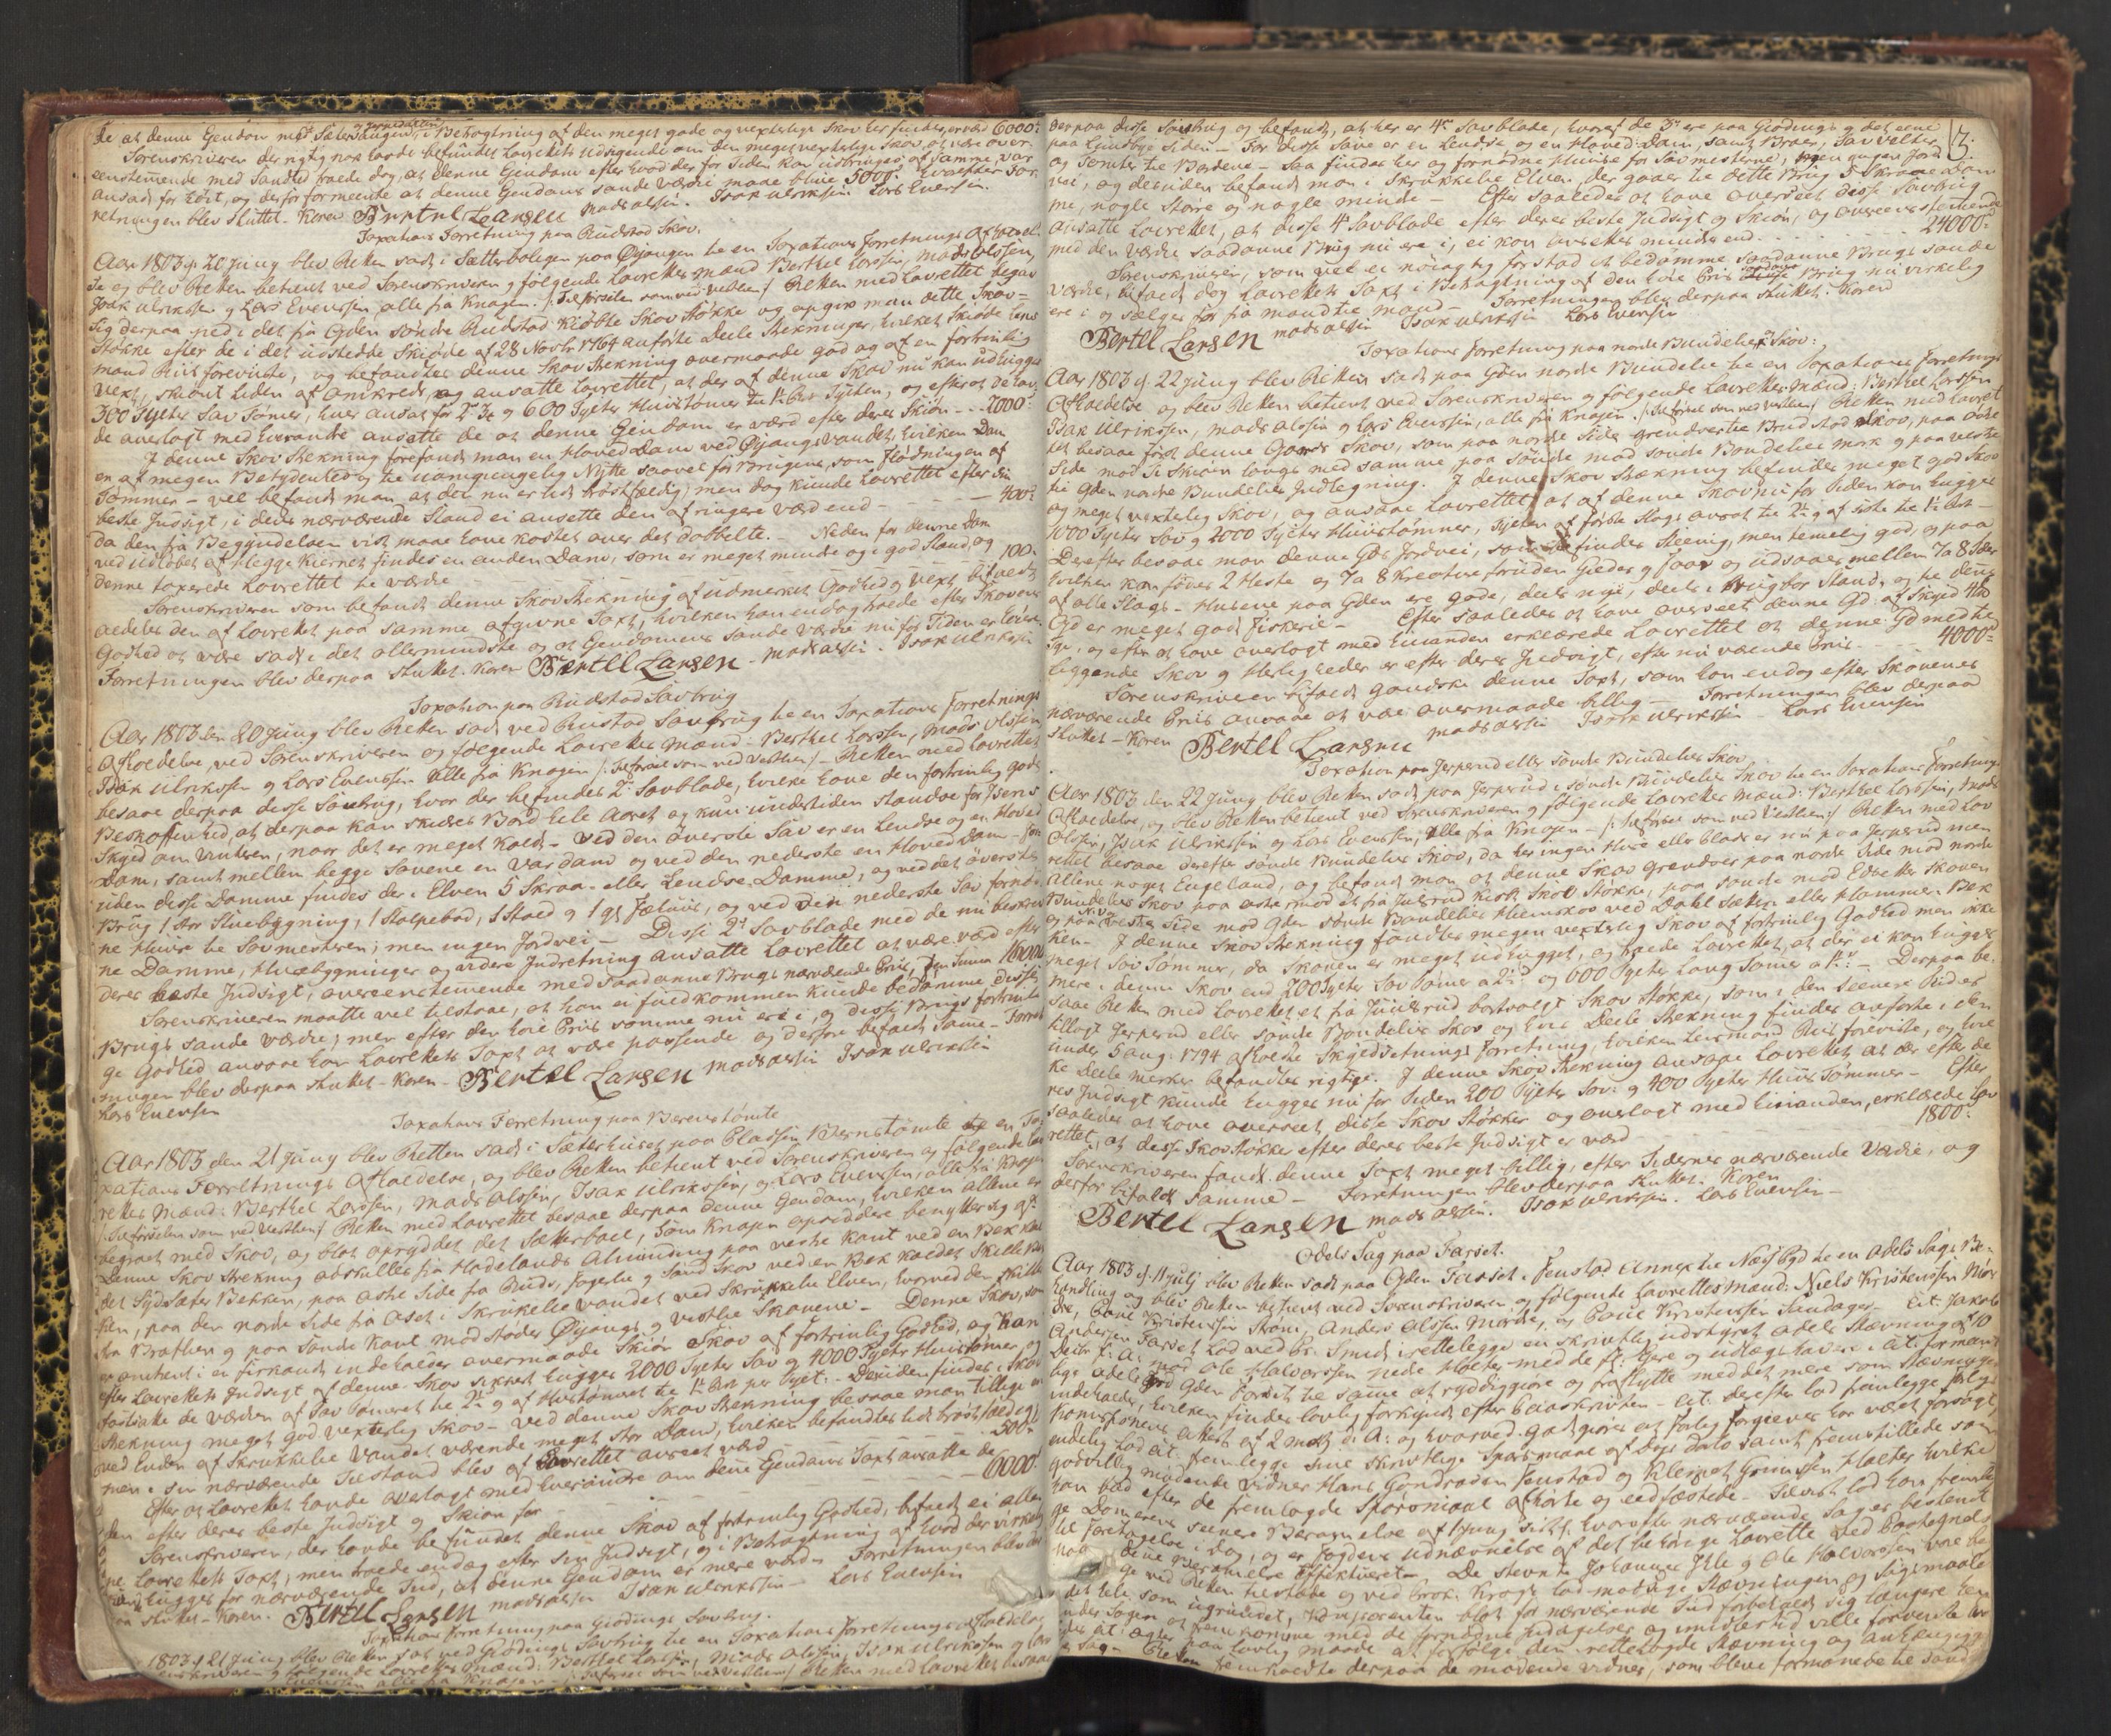 de at denne Gendom med Sæter i Betragtning af den meget gode og vexterlige Skov her findes, er værd 6000
Sorenskriveren der rigtig nok havde befundet Lavrettets Udsigende om den meget vexterlige Skov, at være over
eenstemmende med Sandhed troede dog, at denne Gendom efter hvad der for Tiden kan udbringes af samme, var
ansadt for høit, og derfor formeente at denne Gendoms sande Værdie maae blive 5000. Hvorefter For
retningen blev sluttet. Koren Bertel Larsen Mads Olsen. Isak Ulriksen Lars Evensen.
Taxations Forretning paa Rudstad Skov.
Aar 1803 d. 20 Juny blev Retten sadt i Sætterboligen paa Øyangen til en Taxations Forretnings Afholdel
se og blev Retten betient ved Sorenskriveren og følgende Lavrettes mænd Berthel Larssen, Mads Olssen,
Isak Ulrikssen og Lars Evenssen, alle fra Krogen. Retten med Lavrettet begav
sig derpaa ned i det fra Gden søndre Rudstad kiøbte Skov Støkke og opgik man dette Skov-
støkke efter de i det udstedde Skiøde af 28 Novbr 1764 anførte Deele Strekninger, hvilket Skiøde Lens
mand Riis foreviste, og befandtes denne Skov Strekning overmaade god og af en fortrinlig
vext, skiønt liden af omkreds, og ansatte Lavrettet, at der af denne Skov nu kan udhugges
300 Tylter Sav Tømer, hver ansat for 2 og 600 Tylter Huustømer til Tylten, og efter at de hav
de overlagt med hverandre ansatte de at denne Gendom er værd efter deres Skiøn - - - 2000
I denne Skov Strekning forefandt man en Hoved Dam ved Øyangsvandet, hvilken Dam
en af megen Betydenhed og til uomgiengelig Nytte saavel for Brugene, som Flødningen af
Tømmer - vel befandt man at det nu er lidt brøstfældig, men dog kunde Lavrettet efter din
beste Indsigt, i dens nærværende Stand ei ansette den af ringere værd end - - - 400
da den fra Begyndelsen vist maae have kostet over det dobbelte. Neden for denne Dam
ved Udløbet af Hegge Kiernet findes en anden Dam, som er meget mindre og i god Stand, og
denne taxerede Lavrettet til værdie - - - 100
Sorenskriveren som befandt denne Skov Strekning af udmerket Godhed og Vext, bifaldt
aldeles den af Lavrettet paa samme afgivne Taxt, hvilken han endog troede efter Skovens
Godhed at være sadt i det allermindste og at Gendommens sande Værdie nu for Tiden er høiere.
Forretningen blev derpaa sluttet. Koren Bertel Larsen - Mads Olsen. Isak Ulriksen
Taxation paa Rudstad Savbrug
Aar 1803 den 20 Juny blev Retten sadt ved Rustad Savbrug til en Taxations Forretnings
Afholdelse, ved Sorenskriveren og følgende Lavrettes Mænd. Berthel Larssen, Mads Olssen
Isak Ulrikssen og Lars Evenssen alle fra Krogen - Retten med Lavrettet
besaae derpaa disse Savbrug, hvor der befindes 2 Savblade, hvilke have den fortrinlig gode
Beskaffenhed, at derpaa kan skiæres Bord hele Aaret og kun undertiden standse for Isens
Skyld om Vinteren, naar det er meget kaldt - Ved den øverste Sav er en Lendse og en Hoved
Dam, samt mellem begge Savene en Vardam og ved den nederste en Hoved Dam - For
uden disse Damme findes der i Elven 5 Skraa- eller Lendse Damme, og ved det øverste
Brug 1 stor Stuebygning, 1 Stolpebod, 1 Stald og 1 gl Fæhuus, og ved den nederste Sav fornød
ne Huuse til Savmesteren; men ingen Jordvei - Disse 2 Savblade med de nu beskrev
ne Damme, Huusbygninger og videre Indretning ansatte Lavrettet at være værd efter
deres beste Indsigt, overeenstemmende med saadanne Brugs nærværende Priis, Summa 16000
Sorenskriveren maatte vel tilstaae, at han ei fuldkommen kunde bedømme disse
Brugs sande Værdie; men efter den høie Priis samme nu ere i, og disse Brugs fortrinli
ge Godhed ansaae han Lavrettets Taxt at være passende og derfor befaldt Same - Forret
ningen blev derpaa sluttet - Koren - Bertel Larsen Mads Olsen Isak Ulriksen
Lars Evensen
Taxations Forretning paa Bernstomte
Aar 1803 den 21 Juny blev Retten sadt i Sæterhuset paa Pladsen Bernstomte til en Ta
xations Forretnings Afholdelse, og blev Retten betient ved Sorenskriveren og følgende Lav
rettes Mænd: Berthel Larssen, Mads Olssen, Isak Ulrikssen, og Lars Evenssen, alle fra Krogen
Retten med Lavrettet besaae derpaa denne Gendom, hvilken allene er
begroet med Skov, og blot opryddet det Sætterboel, som Krogen opsiddere benytter sig af
Denne Skov Strekning adskilles fra Hadelands Alminding paa vestre kant ved en Bek kal
det Sydsæter Bekken, paa østre Side fra Ruds, Fogerlie og Sand Skov ved en Bek kaldet Skille Be
ken, paa den nordre Side fra Aset i Skrukkelie Vandet ved Skrukkelie Elven, hvorved den skille
fra Brathen og paa søndre Kant mod støder Øyangs og Vestlie Skovene - Denne Skov, som
er omtrent i en firkant indeholder overmaade skiøn Skov af fortrinlig Godhed, og kan
efter Lavrettets Indsigt af denne Skov sikkert hugges 2000 Tylter Sav og 4000 Tylter Huustømer, og
fastsatte de værdien af Sav Tømeret til 2 og af Huustømret til per Tylt. - Desuden findes i Skov
strekning meget god vexterlig Skov - Ved denne Skov Strekning besaae man tillige
ved Enden af Skrukkelie Vandet værende meget stor Dam, hvilken befandtes lidt brøstfældig
men i sin nærværende Tilstand blev af Lavrettet anseet værd - - - 500
Efter at Lavrettet havde overlagt med hverandre om denne Gendoms Taxt ansatte de
den efter deres beste Indsigt og Skiøn for - - - 6000
Sorenskriveren, der havde befundet denne Skov af fortrinlig Godhed, bifaldt ei allene
Lavrettets Taxt; men troede endog efter sin Indsigt, og i Betragtning af hvad der virkelig
hugges for nærværende Tid, at denne Gendom er mere værd. Forretningen blev der
paa sluttet - Koren. Bertel Larsen Mads Olsen Isak Ulriksen - Lars Evensen
Taxations Forretning paa Giødings Savbrug.
1803 d. 21 Juny blev Retten sadt ved Giødings Savbrug til en Taxations Forretnings Afholdelse
og følgende Lavrettes Mænd: Berthel Larssen, Mads Olssen, Isak Ulrikssen og Lars
Evenssen alle fra Krogen Retten med Lavrettet besaae
derpaa disse Savbrug og befandt, at her er 4 Savblade, hvoraf de 3 ere paa Giødings og det eene
paa Lundbye Siden - For disse Save er en Lendse og en Hoved Dam, samt Broer, Savvelter
og Tomter til Bordene - Saa findes her og fornødne Huuse for Savmesterne, men ingen Jord
vei, og desuden befandt man i Skrukkelie Elven der gaaer til dette Brug 5 Skraae Dam
me, nogle større og nogle mindre - Efter saaledes at have overseet disse Savbrug
ansatte Lavrettet, at disse 4 Savblade efter deres beste Indsigt og Skiøn, og overeenstemmende
med den Værdie saadanne Brug nu ere i, ei kan ansettes mindre end - - - 24000
Sorenskriveren, som vel ei nøiagtig forstod at bedømme saadanne Brugs sande
Værdie, bifaldt dog Lavrettets Taxt i Betragtning af den høie Priis Brug nu virkelig
ere i og sælges for fra mand til mand - Forretningen blev derpaa sluttet. Koren
Bertel Larsen Mads Olsen Isak Ulriksen Lars Evensen
Taxations Forretning paa nordre Bundelies Skov:
Aar 1803 d. 22 Juny blev Retten sadt paa Gden nordre Bundelie til en Taxations Forretnings
Afholdelse og blev Retten betient ved Sorenskriveren og følgende Lavrettes Mænd: Berthel Larssen
Isak Ulrikssen, Mads Olssen og Lars Evenssen, alle fra Krogen. Retten med Lavret
tet besaae først denne Gaards Skov, som paa nordre Side grendser til Rudstad Skov, paa østre
Side mod langs med samme, paa søndre mod søndre Bondelies mark og paa vestre
til Gden nordre Bundelies Indlegning. I denne Skov Strækning befindes meget god Skov
og meget vexterlig Skov, og ansaae Lavrettet, at af denne Skov nu for Tiden kan hugges
1000 Tylter Sav og 2000 Tylter Huustømmer, Tylten af første Slags ansat til 2 og af sidste til
Derefter besaae man denne Gds Jordvei, som findes steenig, men temelig god, og paa
hvilken kan føres 2 Heste og 7 a 8 Kreature, foruden Gieder og Faar og udsaaes mellem 7 a 8 Tdr
af alle Slags - Husene paa Gden ere gode, deels nye, deels i brugbar Stand, og til denne
Gd er meget godt Fiskerie - Efter saaledes at have overseet denne Gd af Skyld
og efter at have overlagt med hinanden erklærede Lavrettet at denne Gd med til
liggende Skov og Herligheder er efter deres Indsigt, efter nu værende Priis - - - 4000
Sorenskriveren bifaldt gandske denne Taxt, som han endog efter Skovenes
nærværende Priis ansaae at være overmaade billig - Forretningen blev derpaa
sluttet - Koren Bertel Larsen Mads Olsen Isak Ulriksen - Lars Evensen
Taxation paa Jerperud eller søndre Bundelies Skov
Aar 1803 den 22 Juny blev Retten sadt paa Jerperud i søndre Bundelies Skov til en Taxations Forretnings
Afholdelse, og blev Retten betient ved Sorenskriveren og følgende Lavrettes Mænd: Berthel Larssen, Mads
Olssen, Isak Ulrikssen og Lars Evenssen, alle fra Krogen - Retten med Lav
rettet besaae derefter søndre Bundelies Skov, da her ingen Huse eller er nu paa Jerperud men
allene noget Engeland, og befandt man at denne Skov grendser paa nordre Side mod nordre
Bundelies Skov paa østre mod et fra Juserud kiøbt Skov Støkke, paa søndre mod Skoven
og paa vestre Side mod Gden søndre Bundelies Hiemskov ved Dahl Sætren eller Hammer Bek
ken. I denne Skov Strekning fandtes megen vexterlig Skov af fortrinlig Godhed men ikke
meget Sav Tømmer, da Skoven er meget udhugget, og troede Lavrettet, at der ei kan hugges
mere i denne Skov end 200 Tylter Sav Tømer a 2 og 600 Tylter Lang Tømer a - Derpaa be
saae Retten med Lavrettet et fra Juuserud bortsolgt Skov Støkke, som i den seenere Tid er
tillagt Jerperud eller søndre Bondelies Skov og hvis Deele Strekning findes anførte i den
under 5 Aug. 1794 afholdte Skyldsetnings Forretning, hvilken Lensmand Riis foreviste, og hvil
ke Deele merker befandtes rigtige. I denne Skov Strekning ansaae Lavrettet at der efter de
res Indsigt kunde hugges nu for Tiden 200 Tylter Sav og 400 Tylter Huus Tømmer - Efter
saaledes at have overseet disse Skov Støkker og overlagt med hinanden, erklærede Lav
rettet, at disse Skov Støkker efter deres beste Indsigt er værd - - - 1800
Sorenskriveren fandt denne Taxt meget billig, efter Tidernes nærværende Værdie, og
derfor bifaldt samme - Forretningen blev derpaa sluttet. Koren
Bertel Larsen Mads Olsen. Isak Ulriksen. Lars Evensen -
Odels Sag paa Farset.
Aar 1803 d. 11 July blev Retten sadt paa Gden Farset i Feustad Annex til Næs Pgd til en Odels Sags Be-
handling og blev Retten betient ved Sorenskriveren og følgende Lavrettesmænd: Niels Kristenssen
Povel Kristenssen Strøm, Anders Olssen og Povel Kristenssen Sundager - Cit. Jakob
Andersen Farset lod ved Pr. Smidt irettelegge en skrivtlig udstyret Odels Stævning af 10
til Ole Halvorssen nedre Holter med de fl: og i Cit. formeent
lige Odels Gden Farset til samme at ryddiggiøre og fraflytte med det mere som Stævningen
indeholder, hvilken findes lovlig forkyndt efter Paaskrivten - Cit. derefter lod fremlegge Forlig
Komissionens Attest af og hvorved godtgiøres at Forlig forgieves har været forsøgt,
endelig lod Cit. fremlegge sine skrivtlige Spørsmaale af Dags Dato samt fremstillede som
godvillig mødende Vidner Hans Feustad og Holter hvilke
han bad efter de fremlagde Spørsmaal afhørte og eedfæstede. 
ge Domerens Berammelse af hvorefter nærværende Sag er bestemt
til Foretagelse i Dag, og er Fogdens Udnævnelse af det behørige Lavrette ved Paategnelse
paa denne Berammelse effektueret - De stevnte Johannes og Ole Halvorssen vare be
ge ved Retten tilstæde og ved Prok. Krogh lod modsige Stævningen og Sigtmaalet
i det hele som ugrundet, blot for nærværende Tid forbeholdt sig længere hen
under Sagen at fremkomme med de fornødne Indsigelser og imidlertid ville forvente hvor
Cit. agter paa lovlig maade at forfølge den rettelagde Stævning og anhængig
Retten fremkaldte derpaa de mødende Vidner, som bleve formanede til Sand